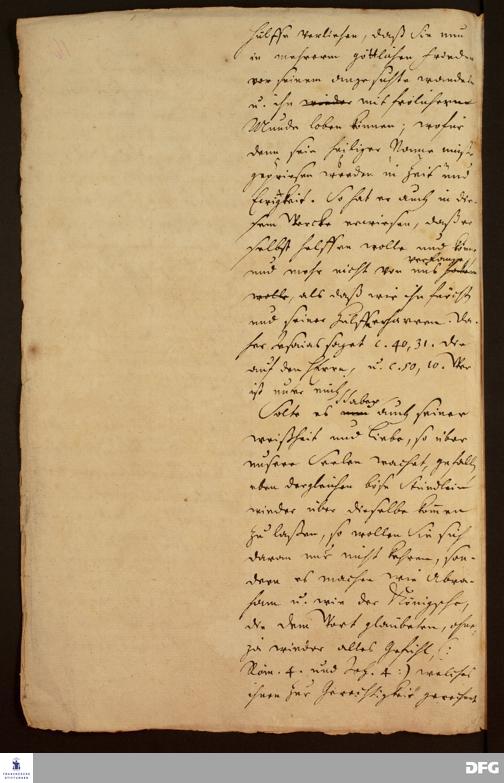 hülffe verliehen, daß Sie nun
in mehrerm göttlichen Frieden
vor seinem angesichte wandeln
u. ihn wieder mit frölicherm
Munde loben können; wofür
denn sein heiliger Name müsse
gepriesen werden in Zeit und
Ewigkeit. So hat er auch in die-
sem Wercke erwiesen, daß er
selbst helffen wolle und könne
verlange
und mehr nicht von uns haben
wolle, als daß wir ihn fürcht
und seiner Hülffe harren. Da-
her Esaias saget c. 40, 31. die
auf den Herrn, u. c. 50, 10. Wer
ist unter euch
aber
Solte es nun auch seiner
weißheit und Liebe, so über
unsere Seelen wachet, gefallen
eben dergleichen böse Stündlein
wieder über dieselbe kommen
zu laßen, so wollen Sie sich
daran nur nicht kehren, son-
dern es machen wie Abra-
ham u. wie der Königsche,
die dem Wort glaubeten, ohne
ja wieder alles Gefühl, (:
Röm. 4. und Joh. 4:) welches
ihnen zur Gerechtigkeit gerechnet
FRANCKESCHE
STIFTUNGEN
DFG